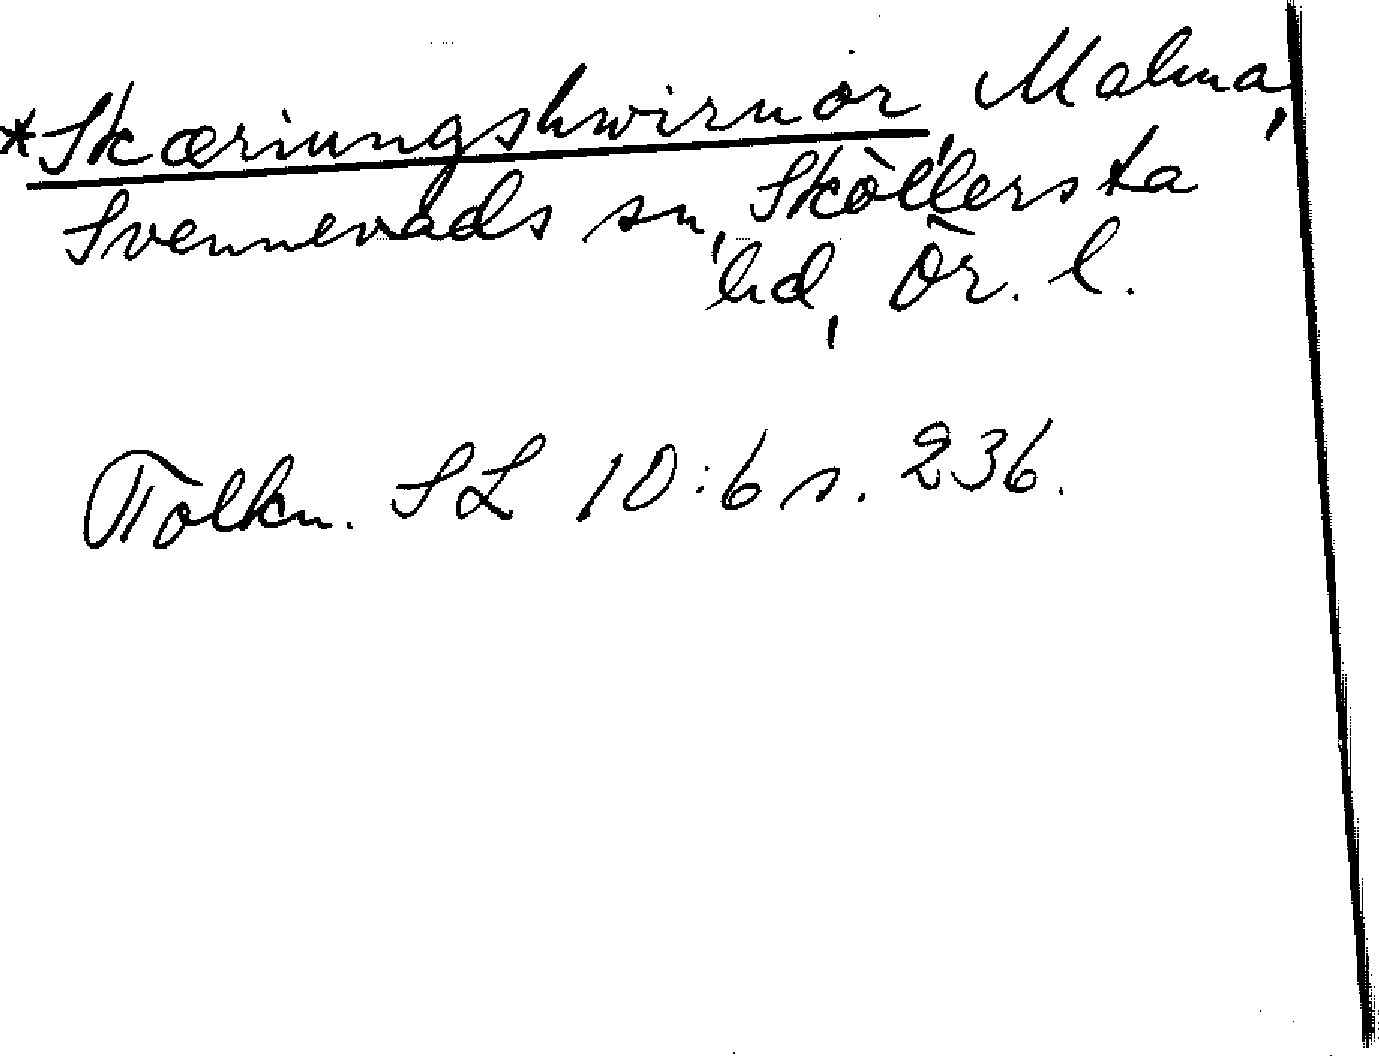 *Skæriungshwirnor, Malma,
Svennevads sn, Sköllersta
hd, Ör. l.
Tolkn. SL 10:6 s. 236.